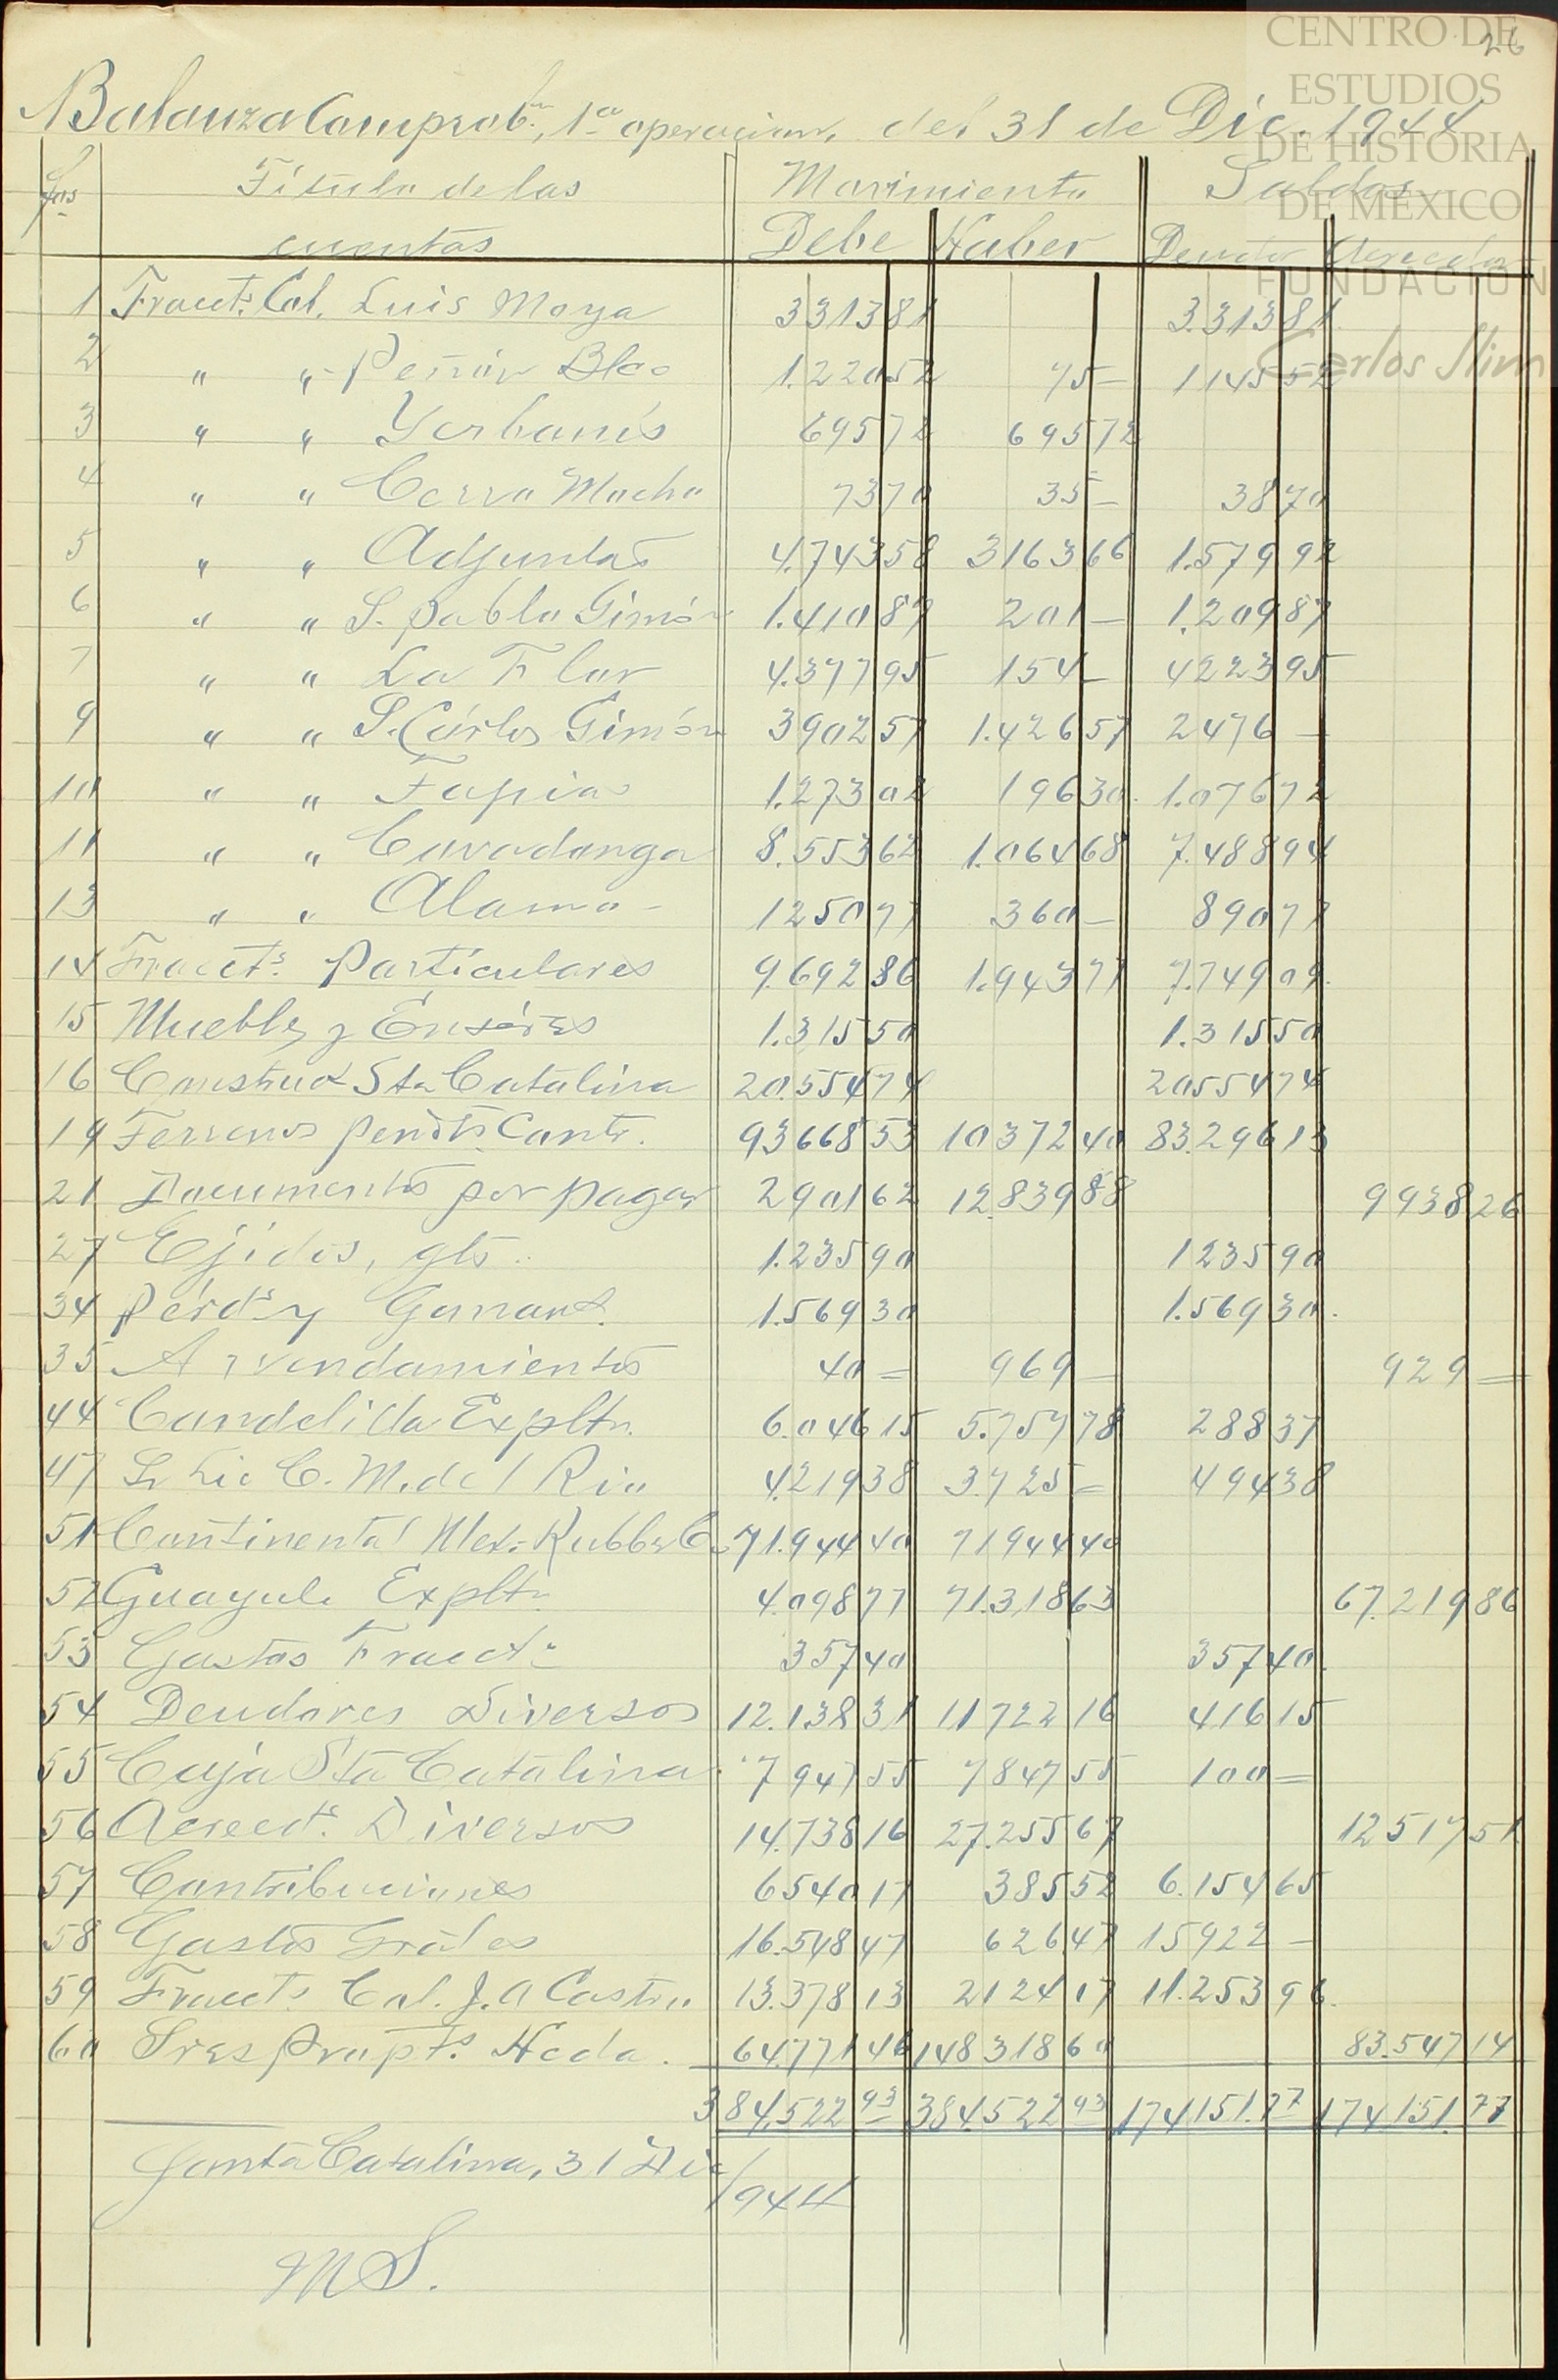 CENTRO DE
ESTUDIOS
DE HISTORIA
DE MÉXICO
FUNDACIÓN
Carlos Slim
26
Balanza Comprobn., 1a operacion, del 31 de Dic. 1944
Fjas Título de las Movimiento Saldos
cuentas Debe Haber Deudor Acreedor
1 Fracct: Col. Luis Moya 3313 81 3.313 81
2 " " Peñón Blco 1.220 52 75 — 1145 52
3 " " Yerbanís 695 72 695 72
4 " " Cerro Mocho 73 70 35 — 38 70
5 " " Adjuntas 4.743 58 3163 66 1.579 92
6 " " S. Pablo Gimón 1.410 87 201 — 1.209 87
7 " " La Flor 4.377 95 154 — 4223 95
9 " " S. Cárlos Gimón 3902 57 1.426 57 2476 —
10 " " Tapias 1.273 02 196 30 1.076 72
11 " " Cavadonga 8.553 62 1.064 68 7.488 94
13 " " Alamo 1250 77 360 — 890 77
14 Fracct: Particulares 9.692 86 1.943 77 7.749 09
15 Muebles y Enséres 1.315 50 1.315 50
16 Construct Sta Catalina 20.554 74 20554 74
19 Terrenos pendts. Contr. 93668 53 10372 40 83.296 13
21 Documentos por pagar 2901 62 12.839 88 9938 26
27 Ejidos, gts.. 1.235 90 1235 90
34 Pérds y Gananc. 1.569 30 1.569 30
35 Arrendamientos 40 = 969 — 929 =
44 Candelilla Expltn. 6.046 15 5.757 78 288 37
47 Sr Lic C. M. del Rio 4.219 38 3.725 = 494 38
51 Continental Mex. Rubber Co 71.944 40 71944 40
52 Guayule Expltn 4.098 77 71.318 63 67.219 86
53 Gastos Fracct: 357 40 357 40
54 Deudores Diversos 12.138 31 11722 16 416 15
55 Caja Sta Catalina 7947 55 7847 55 100 =
56 Acreedt: Diversos 14.738 16 27.255 67 12517 51
57 Contribuciones 6540 17 385 52 6.154 65
58 Gastos Gráles 16.548 47 626 47 15922 —
59 Fracct: Col. J. A Castro 13.378 13 2124 17 11.253 96
60 Sres Propts. Hcda. 64.771 46 148318 60 83.547 14
384,522 93 384.522 93 174151.77 174,151.77
Santa Catalina, 31 Dic/944
M S.